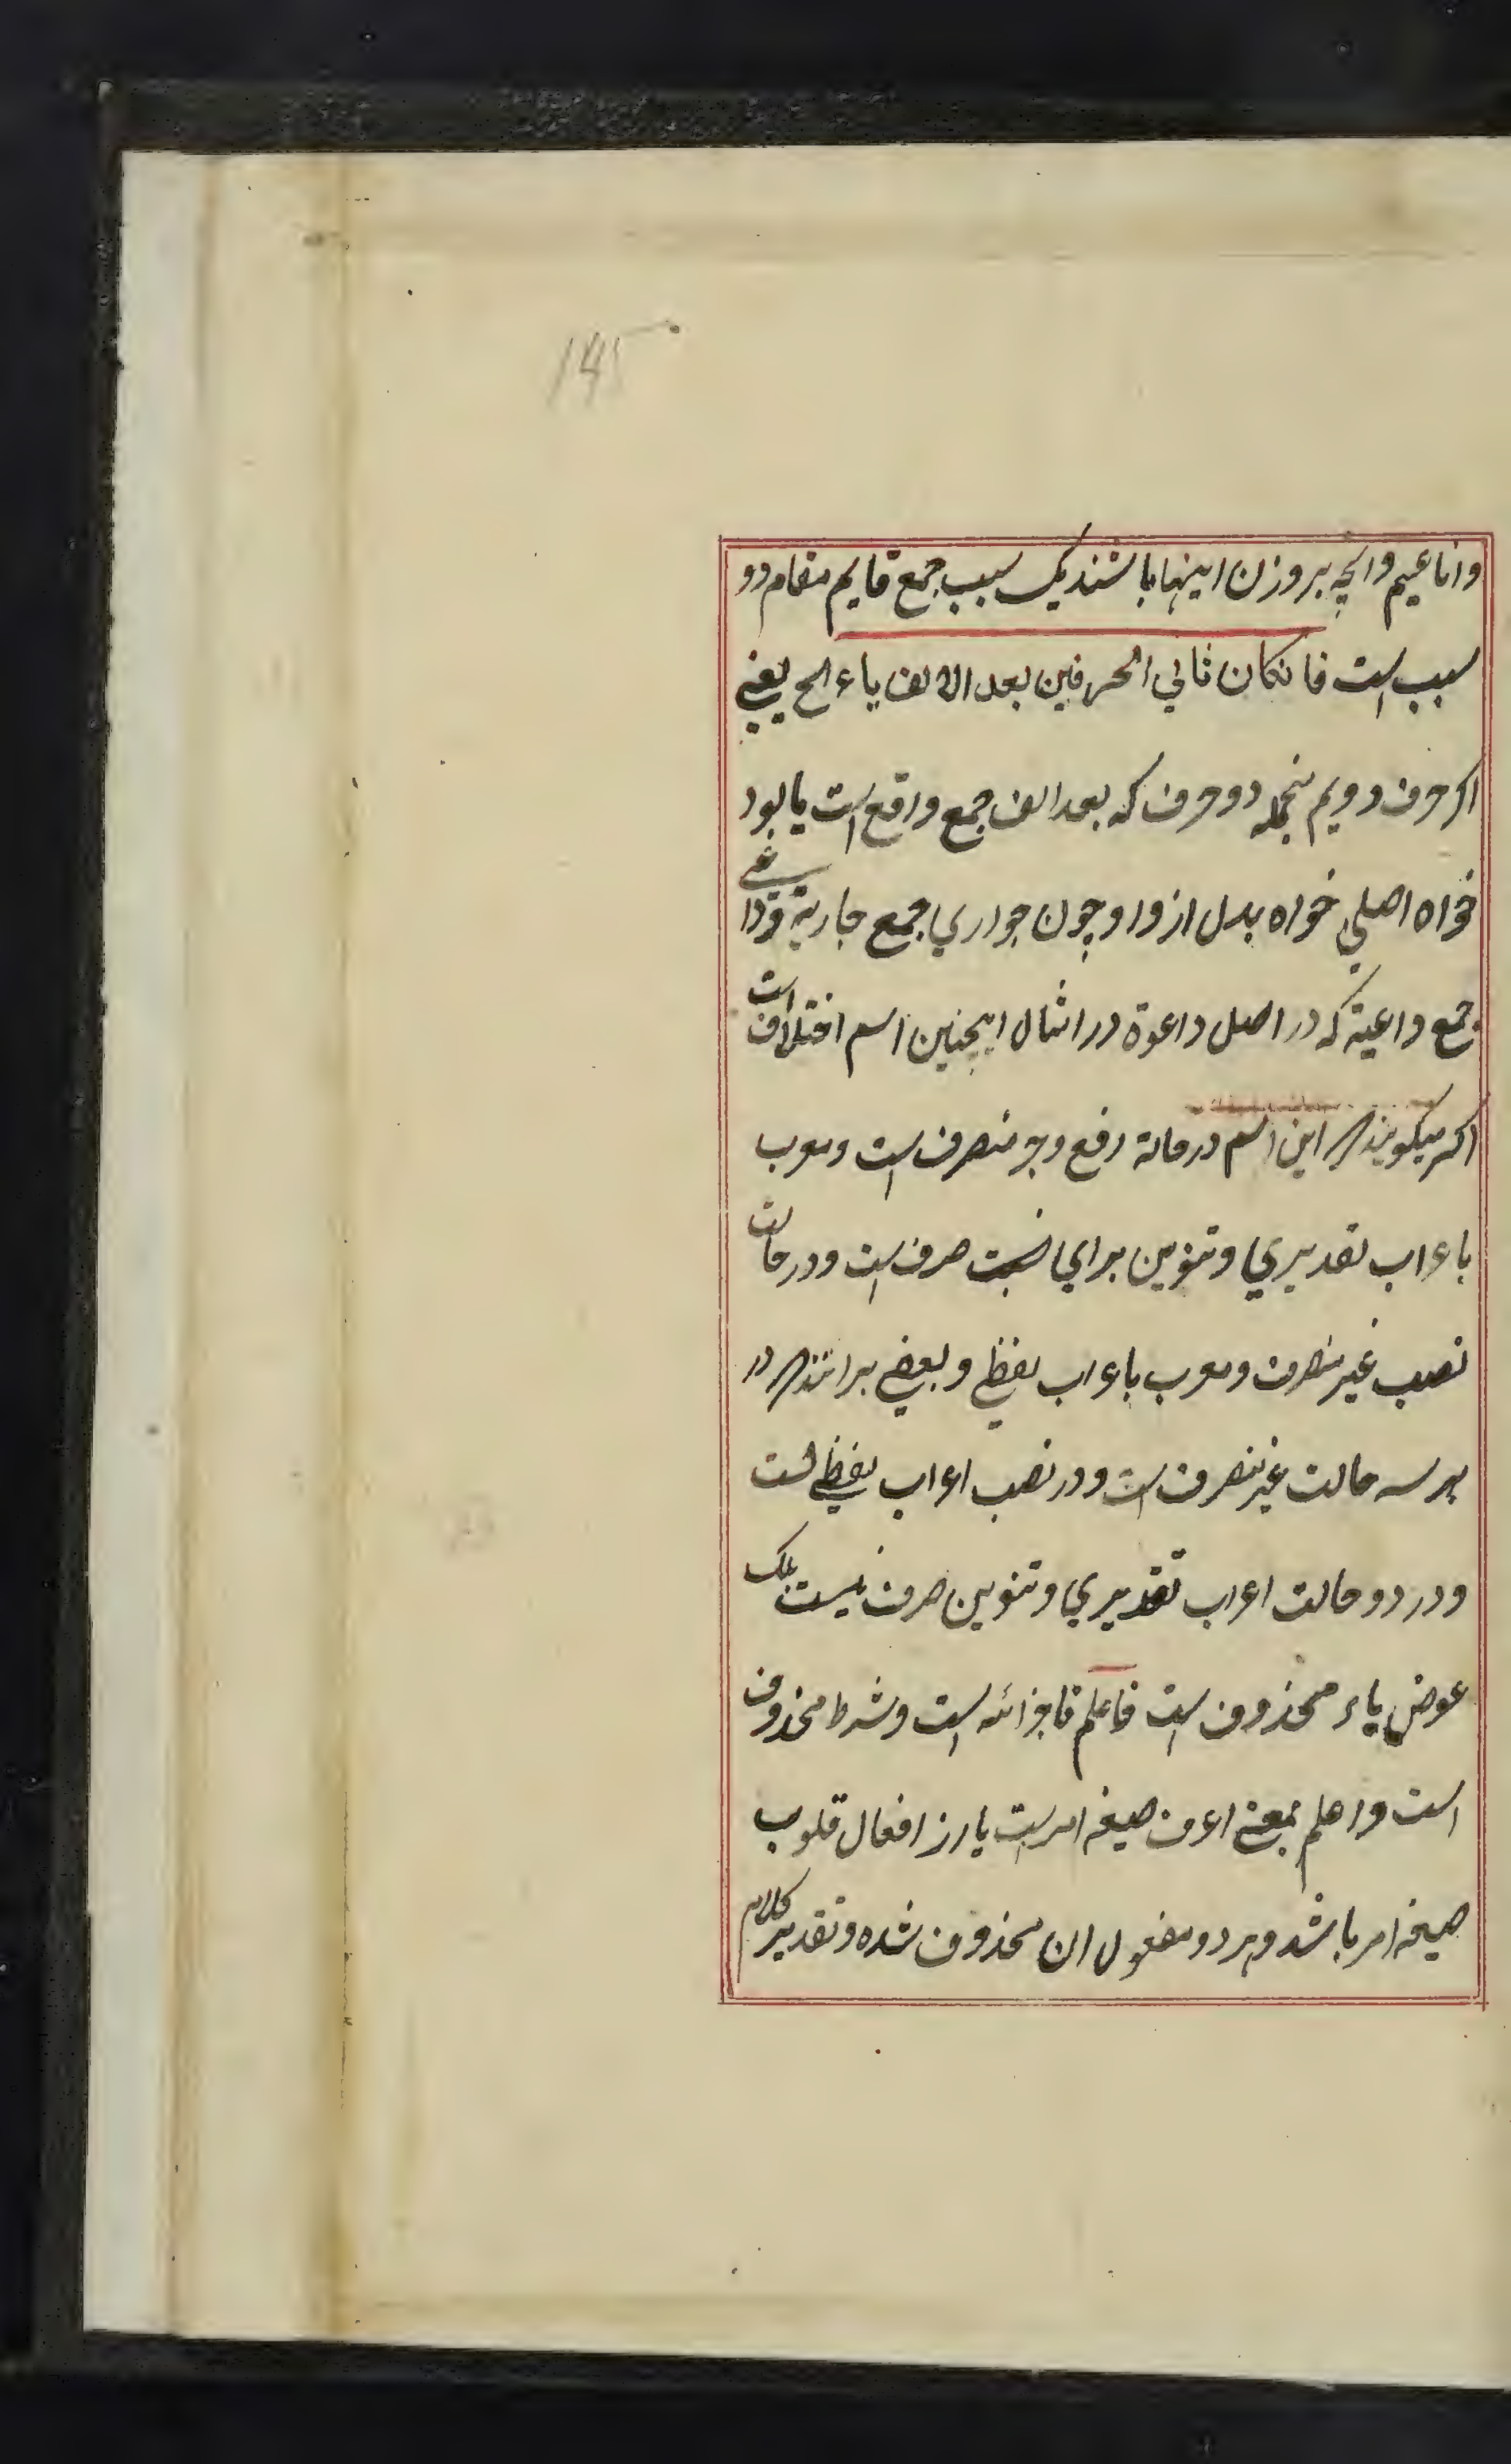 145
واناعیم وانچه بروزن اینها باشند یک سبب جمع قایم مقام دو
سبب است فانکان ثانی الحرفین بعد الالف یاء الخ یعنی
اکر حرف دویم منجمله دو حرف که بعد الف جمع واقع است یا بود
خواه اصلی خواه بدل از واو چون جواری جمع جاریة ودواعی
جمع داعیة که در اصل داعوة در امثال اینچنین اسم اختلاف است
اکثر میکویند که این اسم در حالة رفع وجر منصرف است ومعرب
باعراب تقدیری وتنوین برای صرف است ودر حالت
نصب غیر منصرف ومعرب باعراب لفظی وبعضی برانند که در
هر سه حالت غیر منصرف است ودر نصب اعراب لفظی است
ودر دو حالت اعراب تقدیری وتنوین صرف نیست بلکه
عوض یاء محذوف است فاعلم فا جزائیه است وشرط محذوف
است واعلم بمعنی اعرف صیغه امر است یا از افعال قلوب
صیغه امر باشد وهر دو مفعول ان محذوف شده وتقدیر کلام